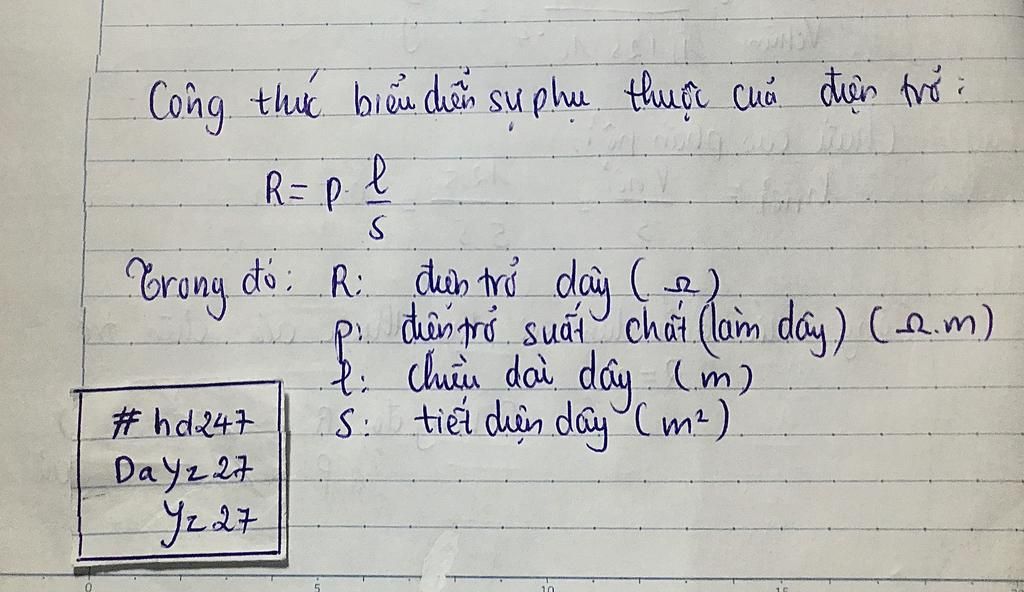 Công thức biểu diễn sự phụ thuộc của điện trở:
R = p. l/s
Trong đó: R: điện trở dây (Ω)
p: điện trở suất chất (làm dây) (Ω.m)
l: chiều dài dây (m)
S: tiết diện dây (m²)
# hd247
DaYz27
Yz27
0 5 10 15